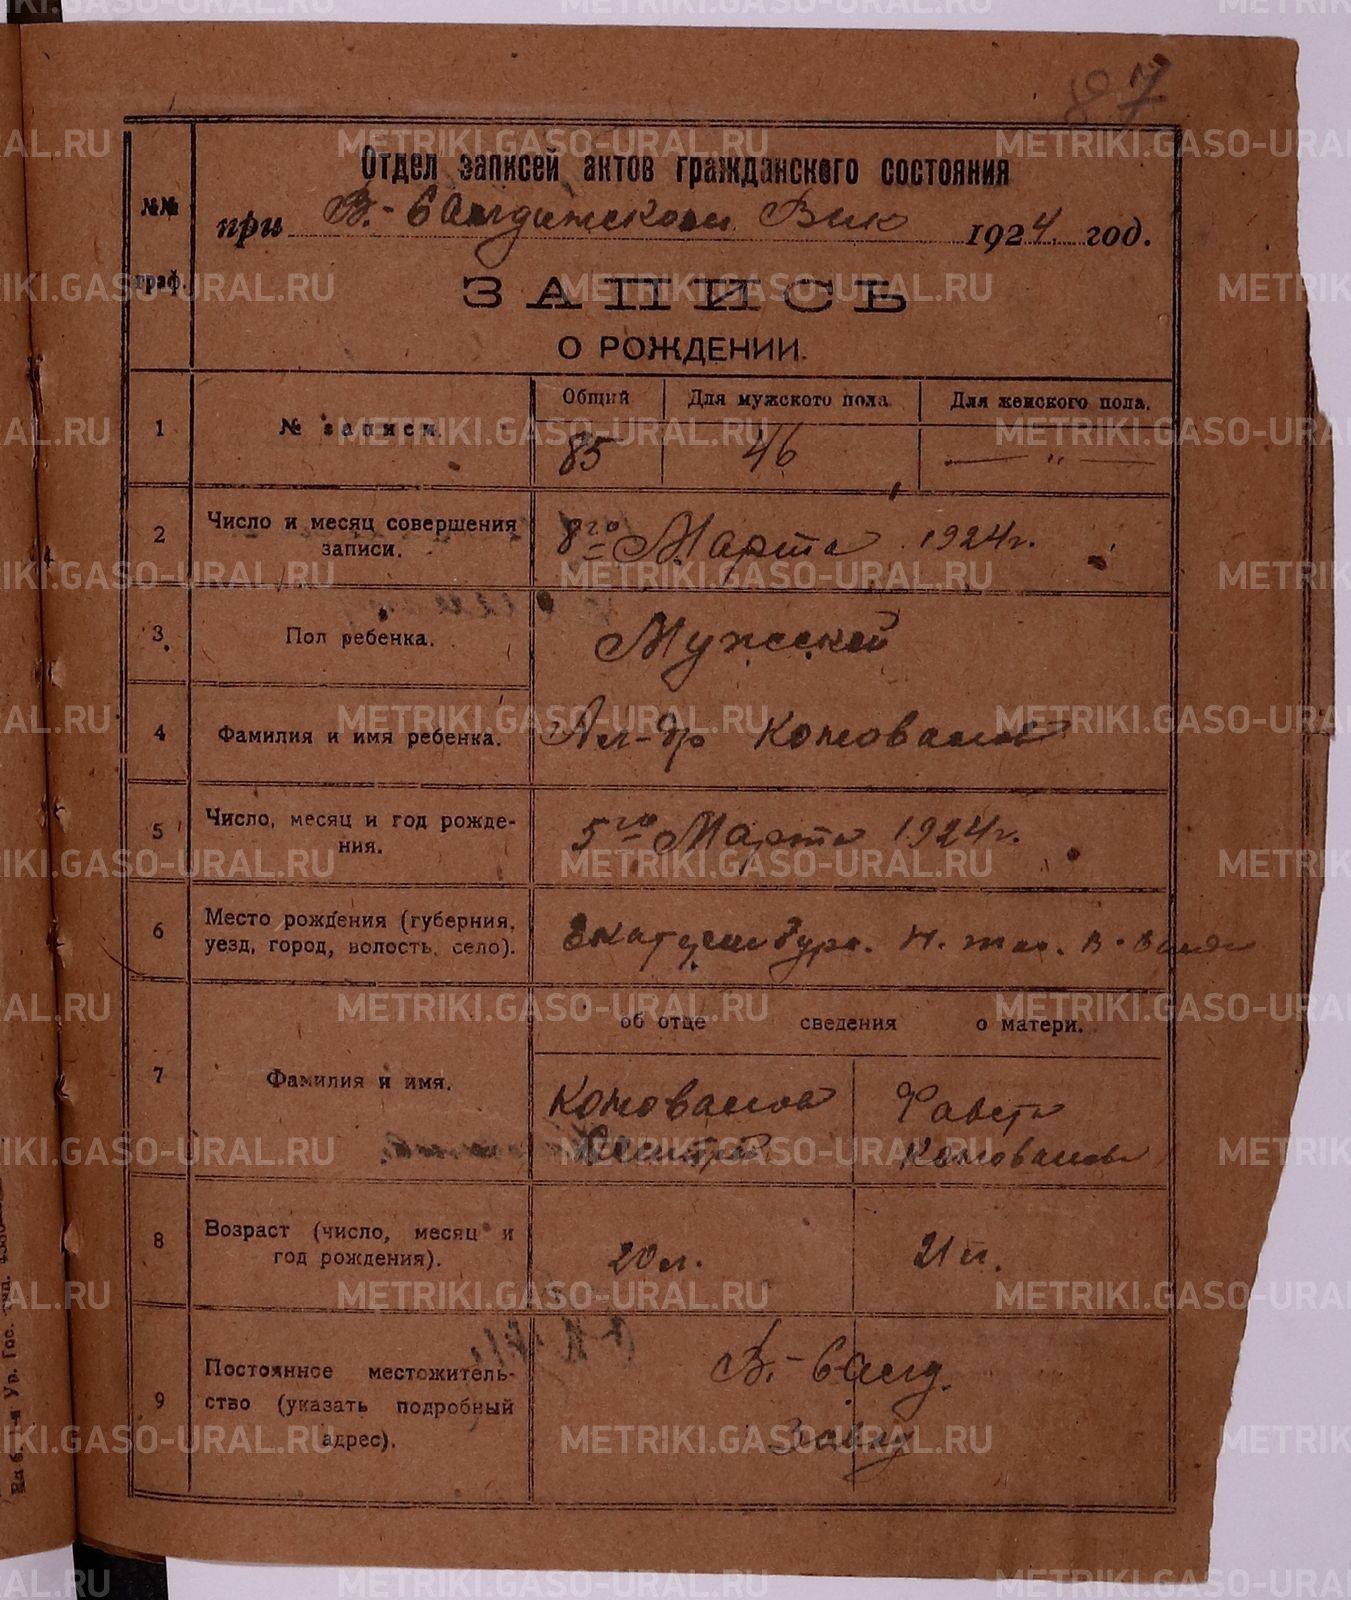 87
Отдел записей актов гражданского состояния
№№ граф.
при В.-Салдинском Вик 1924 год.
ЗАПИСЬ
О РОЖДЕНИИ.
Общий Для мужского пола. Для женского пола.
1 № записи. 85 46 — " —
2 Число и месяц совершения записи. 8го Марта 1924 г.
3 Пол ребенка. Мужской
4 Фамилия и имя ребенка. Ал-др Коновалов
5 Число, месяц и год рождения. 5го Марта 1924 г.
6 Место рождения (губерния, уезд, город, волость, село). Екатеринбург. Н. таг. В-Салд
об отце сведения о матери.
7 Фамилия и имя. Коновалов Коновалова
8 Возраст (число, месяц и год рождения). 20 л. 21 л.
9 Постоянное местожительство (указать подробный адрес). В.-Салд. Завод
METRIKI.GASO-URAL.RU